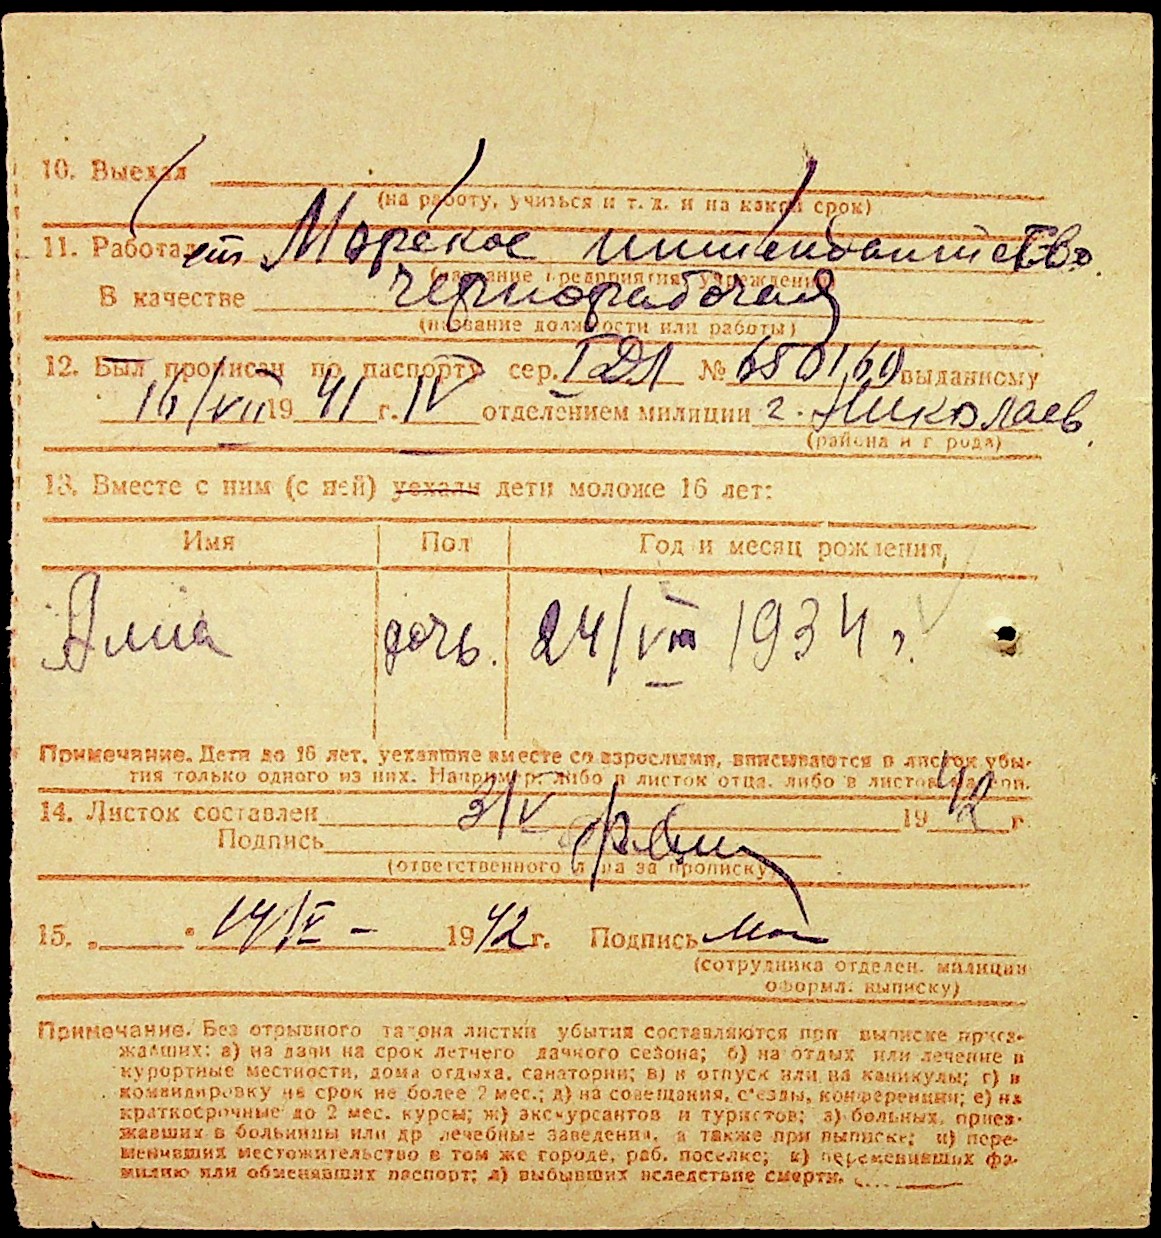 10. Выехал
(на работу, учиться и т. д. и на какой срок)
11. Работает Морское интенданство
(название предприятия, учреждения)
В качестве чернорабочая
(название должности или работы)
12. Был прописан по паспорту сер. ГДЛ № 650160 выданному
16/VII 1941 г. IV отделением милиции г. Николаев
(района и города)
13. Вместе с ним (с ней) уехали дети моложе 16 лет:
Имя Пол Год и месяц рождения,
Алла дочь. 24/VIII 1934 г.
Примечание. Дети до 16 лет, уехавшие вместе со взрослыми, вписываются в листок убы-
тия только одного из них. Например: либо в листок отца, либо в листок матери.
14. Листок составлен 3/V 1942 г.
Подпись
(ответственного лица за прописку)
15. „ " 14/V - 1942 г. Подпись
(сотрудника отделен. милиции
оформл. выписку)
Примечание. Без отрывного талона листки убытия составляются при выписке приез-
жавших: а) на дачи на срок летнего дачного сезона; б) на отдых или лечение в
курортные местности, дома отдыха, санатории; в) в отпуск или на каникулы; г) в
командировку на срок не более 2 мес.; д) на совещания, съезды, конференции; е) на
краткосрочные до 2 мес. курсы; ж) экскурсантов и туристов; з) больных, приез-
жавших в больницы или др лечебные заведения, а также при выписке; и) пере-
менивших местожительство в том же городе, раб. поселке; к) переменивших фа-
милию или обменявших паспорт; л) выбывших вследствие смерти.